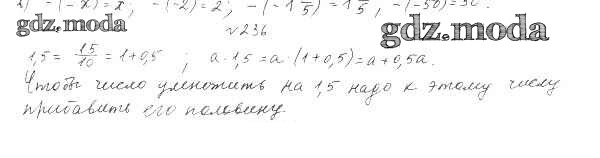 -(-x)=x; -(-2)=2; -(-1 1/5)=1 1/5, -(-50)=50.
gdz.moda
№236
gdz.moda
1,5 = 15/10 = 1+0,5 ; a·1,5=a·(1+0,5)=a+0,5a.
Чтобы число умножить на 1,5 надо к этому числу
прибавить его половину.